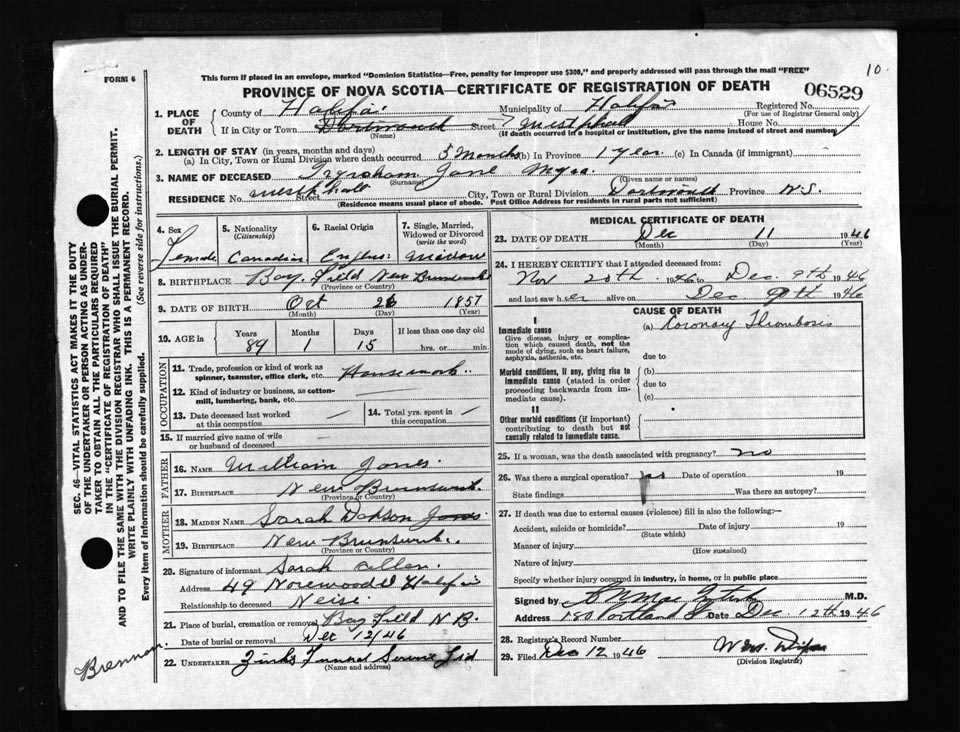 10.
FORM 6
This form if placed in an envelope, marked "Dominion Statistics—Free, penalty for improper use $300," and properly addressed will pass through the mail "FREE"
PROVINCE OF NOVA SCOTIA—CERTIFICATE OF REGISTRATION OF DEATH
06529
1. PLACE OF DEATH
County of Halifax Municipality of Halifax Registered No.
(For use of Registrar General only)
If in City or Town Dartmouth Street Westphal House No.
(Name) (If death occurred in a hospital or institution, give the name instead of street and number)
2. LENGTH OF STAY (in years, months and days)
(a) In City, Town or Rural Division where death occurred 5 Months (b) In Province 1 year. (c) In Canada (if immigrant)
3. NAME OF DECEASED Jane
(Surname) (Given name or names)
RESIDENCE No. Westphal Street City, Town or Rural Division Dartmouth Province N.S.
(Residence means usual place of abode. Post Office Address for residents in rural parts not sufficient)
4. Sex
Female
5. Nationality
(Citizenship)
Canadian
6. Racial Origin
English
7. Single, Married, Widowed or Divorced
(write the word)
Widow
8. BIRTHPLACE Bay Field New Brunswick
(Province or Country)
9. DATE OF BIRTH Oct 26 1857
(Month) (Day) (Year)
10. AGE in Years Months Days If less than one day old
89 1 15 hrs. or min.
OCCUPATION
11. Trade, profession or kind of work as
spinner, teamster, office clerk, etc. Housework.
12. Kind of industry or business, as cotton-
mill, lumbering, bank, etc.
13. Date deceased last worked
at this occupation —
14. Total yrs. spent in
this occupation —
15. If married give name of wife
or husband of deceased —
FATHER
16. NAME William Jones.
17. BIRTHPLACE New Brunswick.
(Province or Country)
MOTHER
18. MAIDEN NAME Sarah Dobson Jones
19. BIRTHPLACE New Brunswick.
(Province or Country)
20. Signature of informant Sarah Allen
Address 49 Halifax
Relationship to deceased Neise.
21. Place of burial, cremation or removal Bay Field N.B.
Date of burial or removal Dec 12/46
22. UNDERTAKER Zinks Funeral Service Ltd
(Name and address)
MEDICAL CERTIFICATE OF DEATH
23. DATE OF DEATH Dec 11 1946
(Month) (Day) (Year)
24. I HEREBY CERTIFY that I attended deceased from:
Nov 20th 1946 to Dec. 9th 1946
and last saw her alive on Dec 9th 1946
CAUSE OF DEATH
I
Immediate cause
Give disease, injury or complica-
tion which caused death, not the
mode of dying, such as heart failure,
asphyxia, asthenia, etc.
(a) Coronary Thrombosis
due to
Morbid conditions, if any, giving rise to
immediate cause (stated in order
proceeding backwards from im-
mediate cause).
(b)
due to
(c)
II
Other morbid conditions (if important)
contributing to death but not
causally related to immediate cause.
25. If a woman, was the death associated with pregnancy? no
26. Was there a surgical operation? no Date of operation 19
State findings Was there an autopsy?
27. If death was due to external causes (violence) fill in also the following:—
Accident, suicide or homicide? Date of injury 19
(State which)
Manner of injury
(How sustained)
Nature of injury
Specify whether injury occurred in industry, in home, or in public place
Signed by M.D.
Address 150 Portland St Date Dec. 12th 1946
28. Registrar's Record Number
29. Filed Dec 12 1946
(Division Registrar)
SEC. 46—VITAL STATISTICS ACT MAKES IT THE DUTY
OF THE UNDERTAKER OR PERSON ACTING AS UNDER-
TAKER TO OBTAIN ALL THE PARTICULARS REQUIRED
IN THE "CERTIFICATE OF REGISTRATION OF DEATH"
AND TO FILE THE SAME WITH THE DIVISION REGISTRAR WHO SHALL ISSUE THE BURIAL PERMIT.
WRITE PLAINLY WITH UNFADING INK. THIS IS A PERMANENT RECORD.
Every item of information should be carefully supplied. (See reverse side for instructions.)
Brennan.